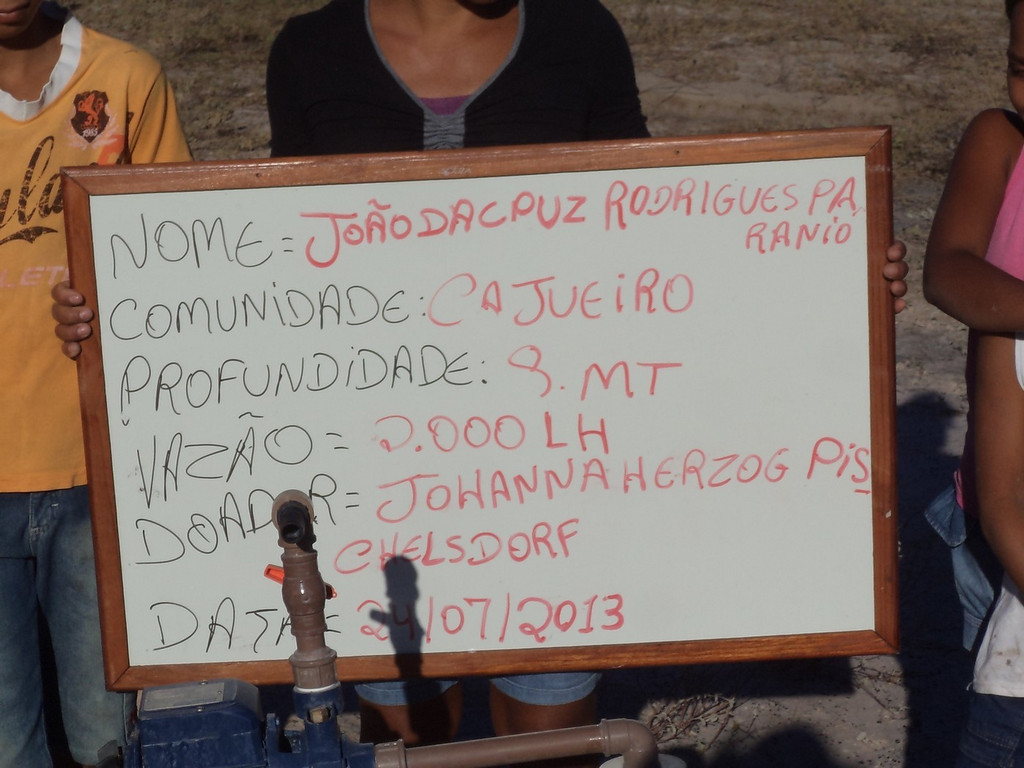 NOME= JOÃO DA CPUZ RODRIGUES PA
RANiO
COMUNiDADE: CAJUEiRO
PROFUNDiDADE: 8. MT
VAZÃO = 2.000 LH
DOADOR= JOHANNA HERZOG PiS
CHELSDORF
DATA= 24/07/2013
1983